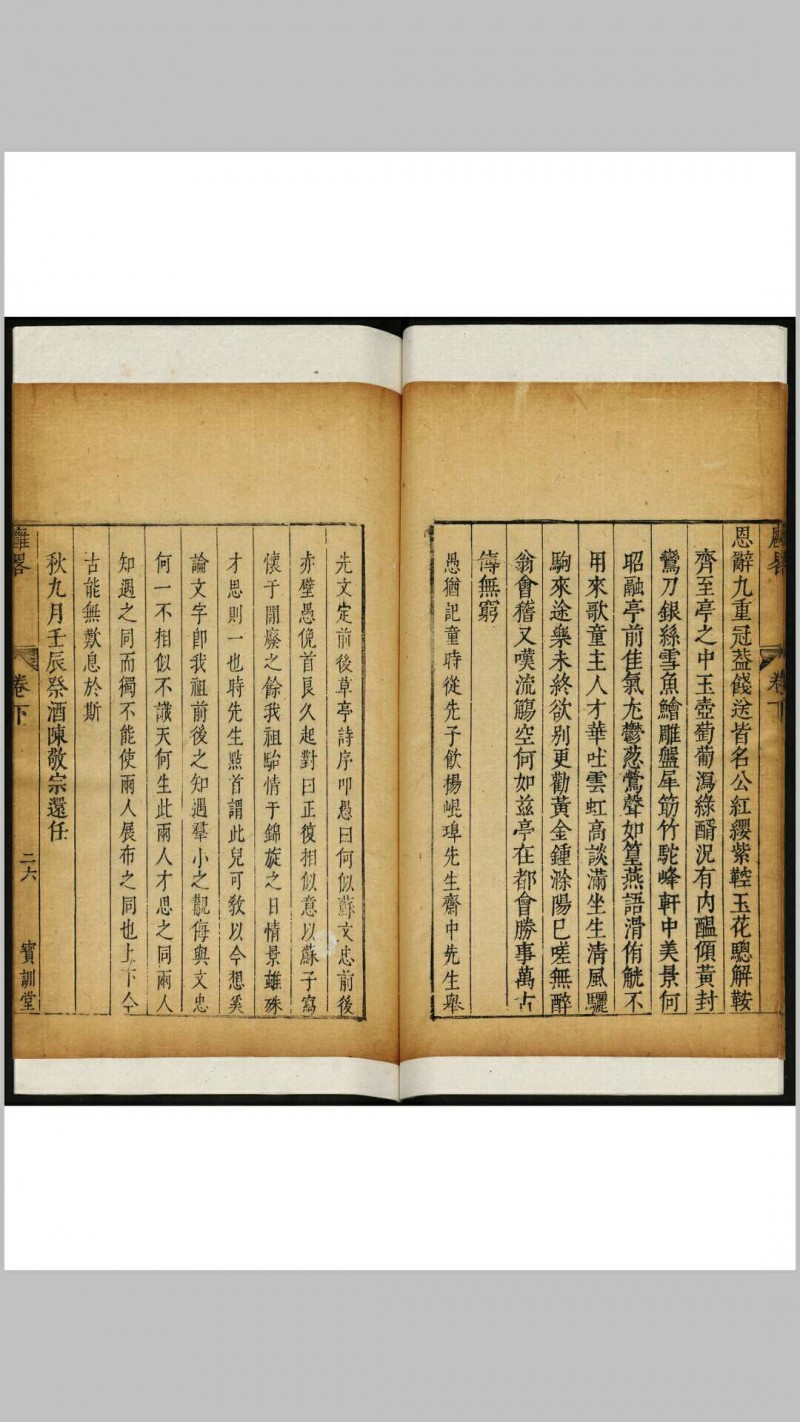 恩辭九重冠葢餞送皆名公紅纓紫鞚玉花驄解鞍
齊至亭之中玉壺萄萄瀉綠醑況有內醞傾黃封
鸞刀銀絲雪魚鱠雕盤犀筯竹駝峰軒中美景何
昭融亭前佳氣尢鬱葱鶯聲如篁燕語滑侑觥不
用來歌童主人才華吐雲虹高談滿坐生淸風驪
駒來途樂未終欲别更勸黃金鍾滁陽已嗟無醉
翁會稽又嘆流觴空何如兹亭在都會勝事萬古
傳無窮
愚猶記童時從先子飲楊崐琕先生齋中先生舉
先文定前後草亭詩序叩愚曰何似蘇文忠前後
赤壁愚俛首良久起對曰正復相似意以蘇子寫
懷于閒廢之餘我祖駘情于錦旋之日情景雖殊
才思則一也時先生㸃首謂此兒可敎以今想奚
論文字卽我祖前後之知遇羣小之覯侮與文忠
何一不相似不識天何生此兩人才思之同兩人
知遇之同而獨不能使兩人展布之同也上下今
古能無歎息於斯
秋九月壬辰祭酒陳敬宗還任
雝畧
卷下
二六
寳訓堂